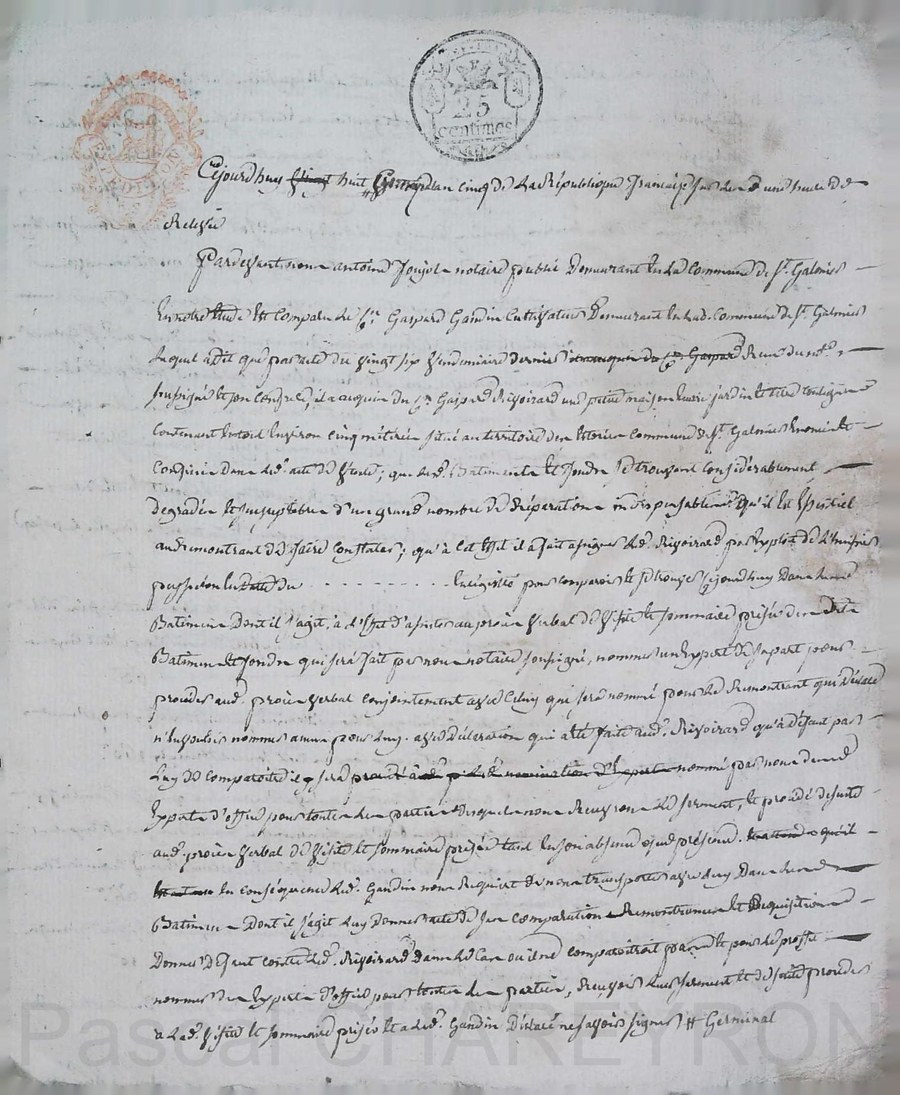 25
centimes
Cejourd'huy vingt huit Germinal an cinq de la République française sur les une heure de
Relevée
Pardevant nous antoine Joujol notaire public Demeurant en la Commune de St. Galmier
En notre Etude Est Comparu le Cn. Gaspard Gandin Cultivateur Demeurant en lad. Commune de St. Galmier
Lequel a dit que par acte du vingt six Vendemiaire dernier Reçu du notre.
Soussigné et son Confrere, il a acquis du Cn. Gaspard Rivoirard une petite maison Ecurie jardin et terre Contigus
Contenant Entout Environ cinq métérée situé au territoire Commune de St. Galmier
Confinée Dans led. acte de Vente; que lesd. Batiments et fonds se trouvant Considérablement
degradés et susceptibles d'un grand nombre de Réparations indispensables qu'il Est Essentiel
aud. remontrant De faire Constater; qu'à cet Effet il a fait assigner led. Rivoirard par Exploit de L'huissier
du Enregistré pour comparoir et se trouver Cejourd'huy Dans lesd.
Batimens Dont il s'agit, à L'Effet d'assister au procès Verbal de Visite et sommaire prisée desdits
Batimens et fonds qui sera fait par nous notaire soussigné, nommer un Expert de sa part pour
proceder aud. procès Verbal conjointement avec Celuy qui sera nommé pour le Remontrant qui a Déclaré
n'En vouloir nommer aucun pour luy. avec Déclaration qui a Eté faite aud. Rivoirard qu'à Défaut par
Luy de Comparoître il y sera procédé à la nomination d'Experts nommé par nous
Experts d'office pour toutes les parties desquels nous Recevrons le serment, et procédé de suite
aud. procès Verbal de Visite et sommaire prisée tant En son absence que présence. qu'il
En conséquence led. Gandin nous Requiert de nous transporter avec luy Dans lesd.
Batimens Dont il s'agit luy Donner acte de ses Comparution Remontrances et Requisition
Donner Défaut contre led. Rivoirard Dans le Cas où il ne comparoitroit pas
nommer des Experts d'office pour toutes les parties, Recevoir leur serment et de suite proceder
a lad. Visite et sommaire prisée et a led. Gandin Déclaré ne sçavoir signer # Germinal
Pascal CHAREYRON